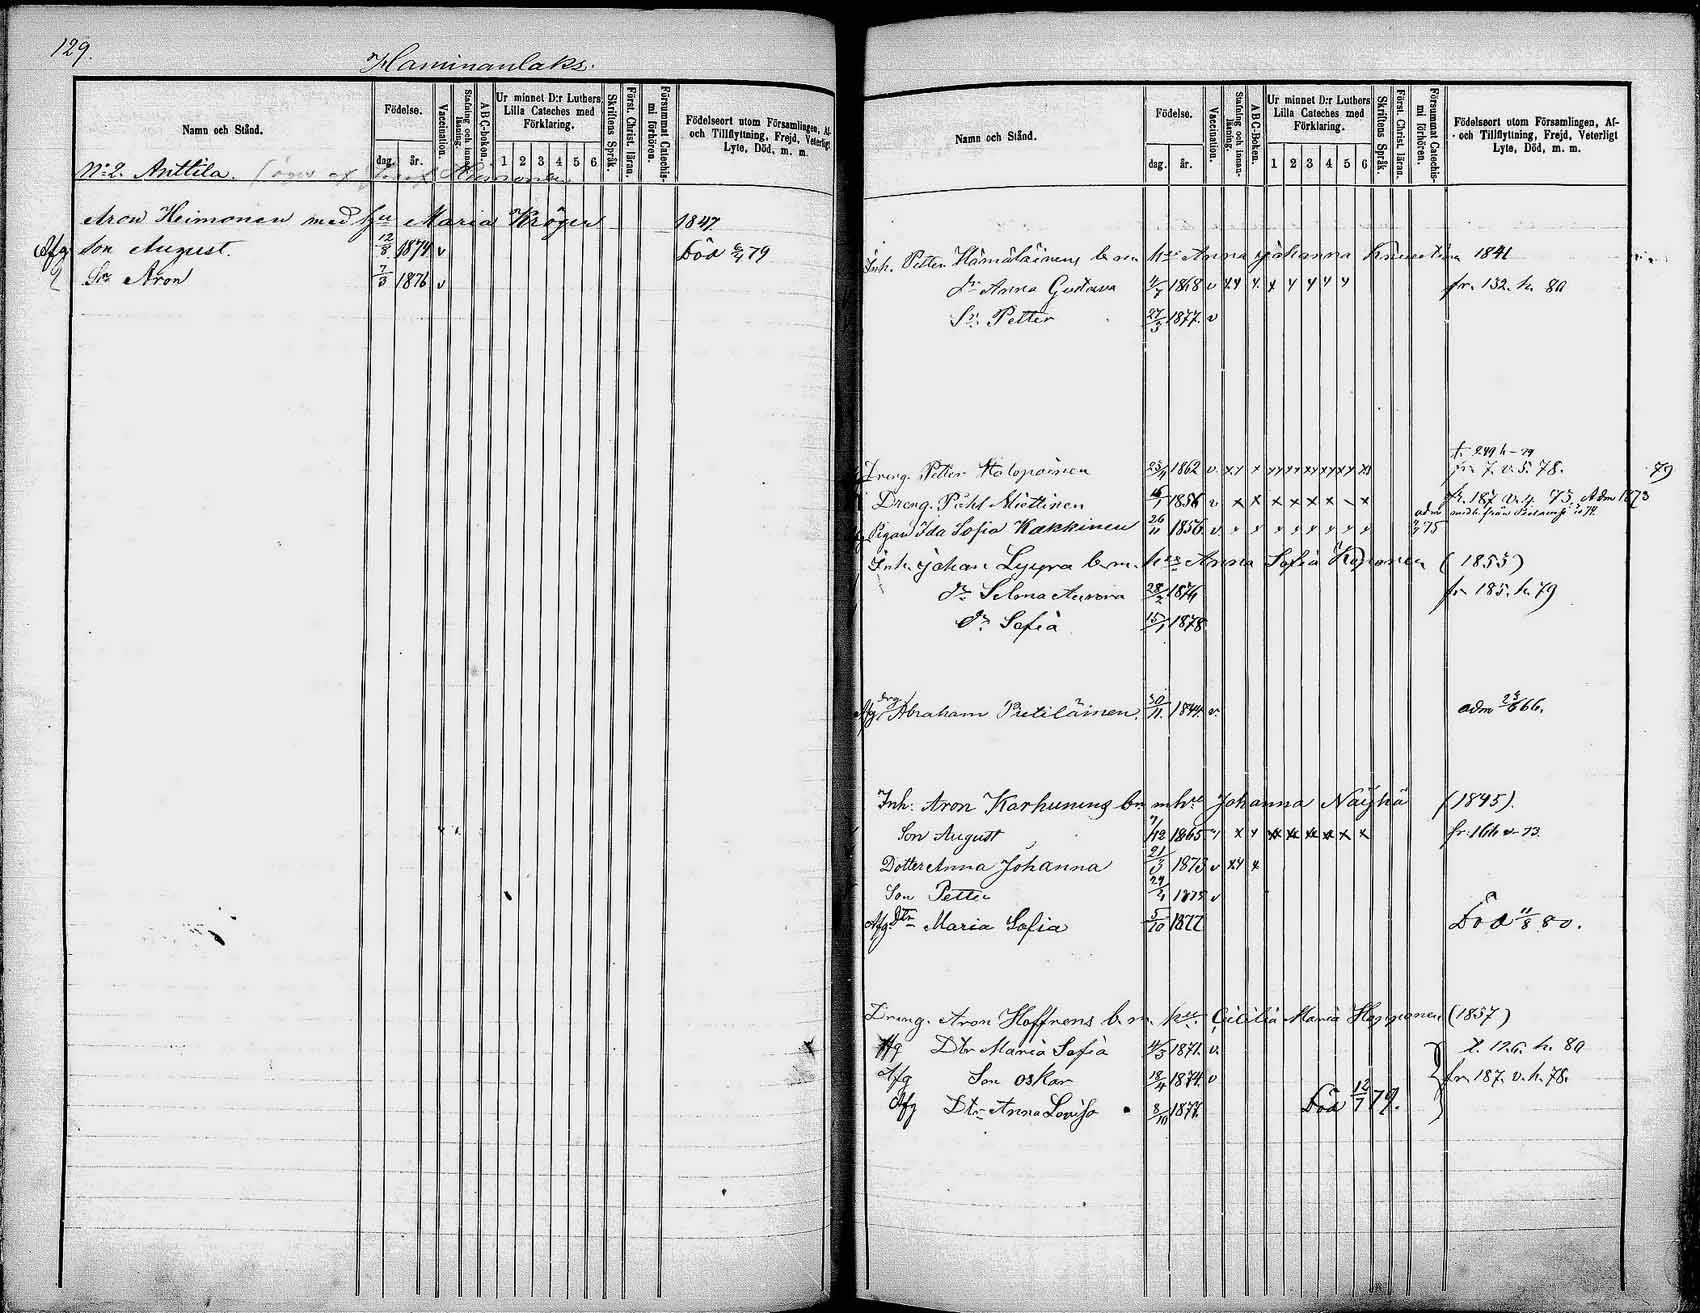 129.
Haminanlaks.
Namn och Stånd.
Födelse.
dag. år.
Vaccination.
Stafning och innanläsning.
A B C-boken.
Ur minnet D:r Luthers Lilla Cateches med Förklaring.
1 2 3 4 5 6
Skriftens Språk.
Först. Christ. läran.
Försummat Catechismi förhören.
Födelseort utom Församlingen, Af- och Tillflyttning, Frejd, Veterligt Lyte, Död, m. m.
N:o 2. Anttila. (äges af Heimonen
Aron Heimonen med hu Maria Kröger 1847
Afg Son August. 12/8 1874 v Död 79
Sn Aron 7/3 1876 v
Namn och Stånd.
Födelse.
dag. år.
Vaccination.
Stafning och innanläsning.
A B C-Boken.
Ur minnet D:r Luthers Lilla Cateches med Förklaring.
1 2 3 4 5 6
Skriftens Språk.
Först. Christ. läran.
Försummat Catechismi förhören.
Födelseort utom Församlingen, Af- och Tillflyttning, Frejd, Veterligt Lyte, Död, m. m.
Inh. Petter Hämäläinens b. m. hu Anna Johanna 1841
dr Anna Gustava 1868 v fr. 132. h. 80
Sn Petter 27/3 1877. v
t. 249 h - 79
Dreng. Petter 1862 v. fr. 7. v. 5. 78. 79
Dreng. Påhl Miettinen 1856 v fr. 187 v. 4. 73. Adm 1873
Pigan Ida Sofia Kakkinen 26/11 1856. v. adm 75
Inh. Johan Lyyra b. m. hu Anna Sofia Koponen (1853)
dr Selma Aurora 28/2 1876 fr. 185. h. 79
dr Sofia 15/1 1878
Afg. drg Abraham Pietiläinen. 30/11. 1844. v. adm 66.
Inh. Aron Karhunens b. m. hu Johanna Näyhä (1845).
Son August 7/12 1865 v fr. 166 v - 73
Dotter Anna Johanna 21/3 1873 v
Son Petter v
Afg. Dtr Maria Sofia 5/10 1877 Död 11/8 80.
Dreng. Aron Hoffrens b. m. hu Cecilia Maria Hopponen (1857)
Afg Dtr Maria Sofia 1871. v. t. 126. h. 80
Afg Son Oskar 18/4 1874. v fr. 187. v. h. 78.
Afg Dtr Anna Lovisa 8/10 1877. Död 12/7 79.